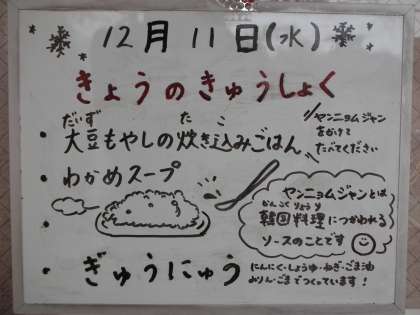 12月11日(水)
きょうのきゅうしょく
だいず た
・大豆もやしの炊き込みごはん
ヤンニョムジャン
をかけて
たべてください
・わかめスープ
・
・ぎゅうにゅう
ヤンニョムジャンとは
かんこくりょうり
韓国料理につかわれる
ソースのことです
にんにく・しょうゆ・ねぎ・ごま油
みりん・ごまでつくっています!